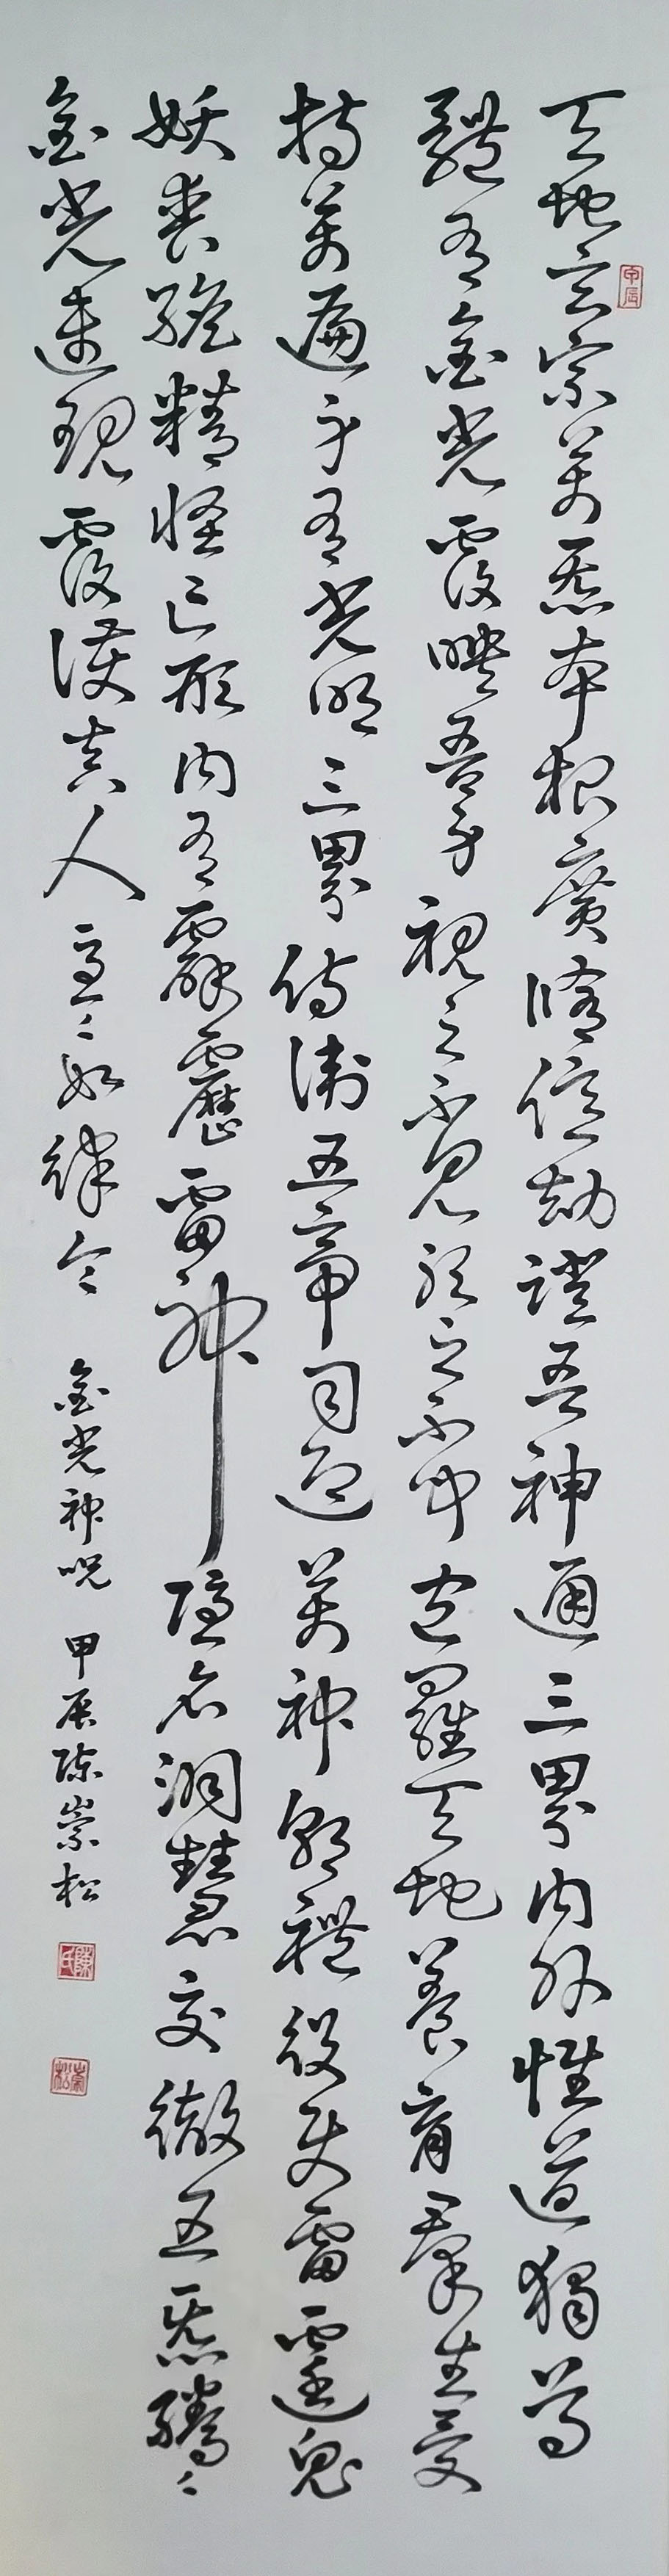 天地玄宗萬炁本根廣脩億劫證吾神通三界內外惟道獨尊
體有金光覆暎吾身視之不見聽之不聞包羅天地養育羣生受
持萬遍身有光明三界侍衛五帝司迎萬神朝禮役使雷霆鬼
妖喪膽精怪亡形內有霹靂雷神隱名洞慧交徹五炁騰〻
金光速現覆護真人急〻如律令 金光神呪 甲辰陳崇松
甲辰
陳氏
崇松